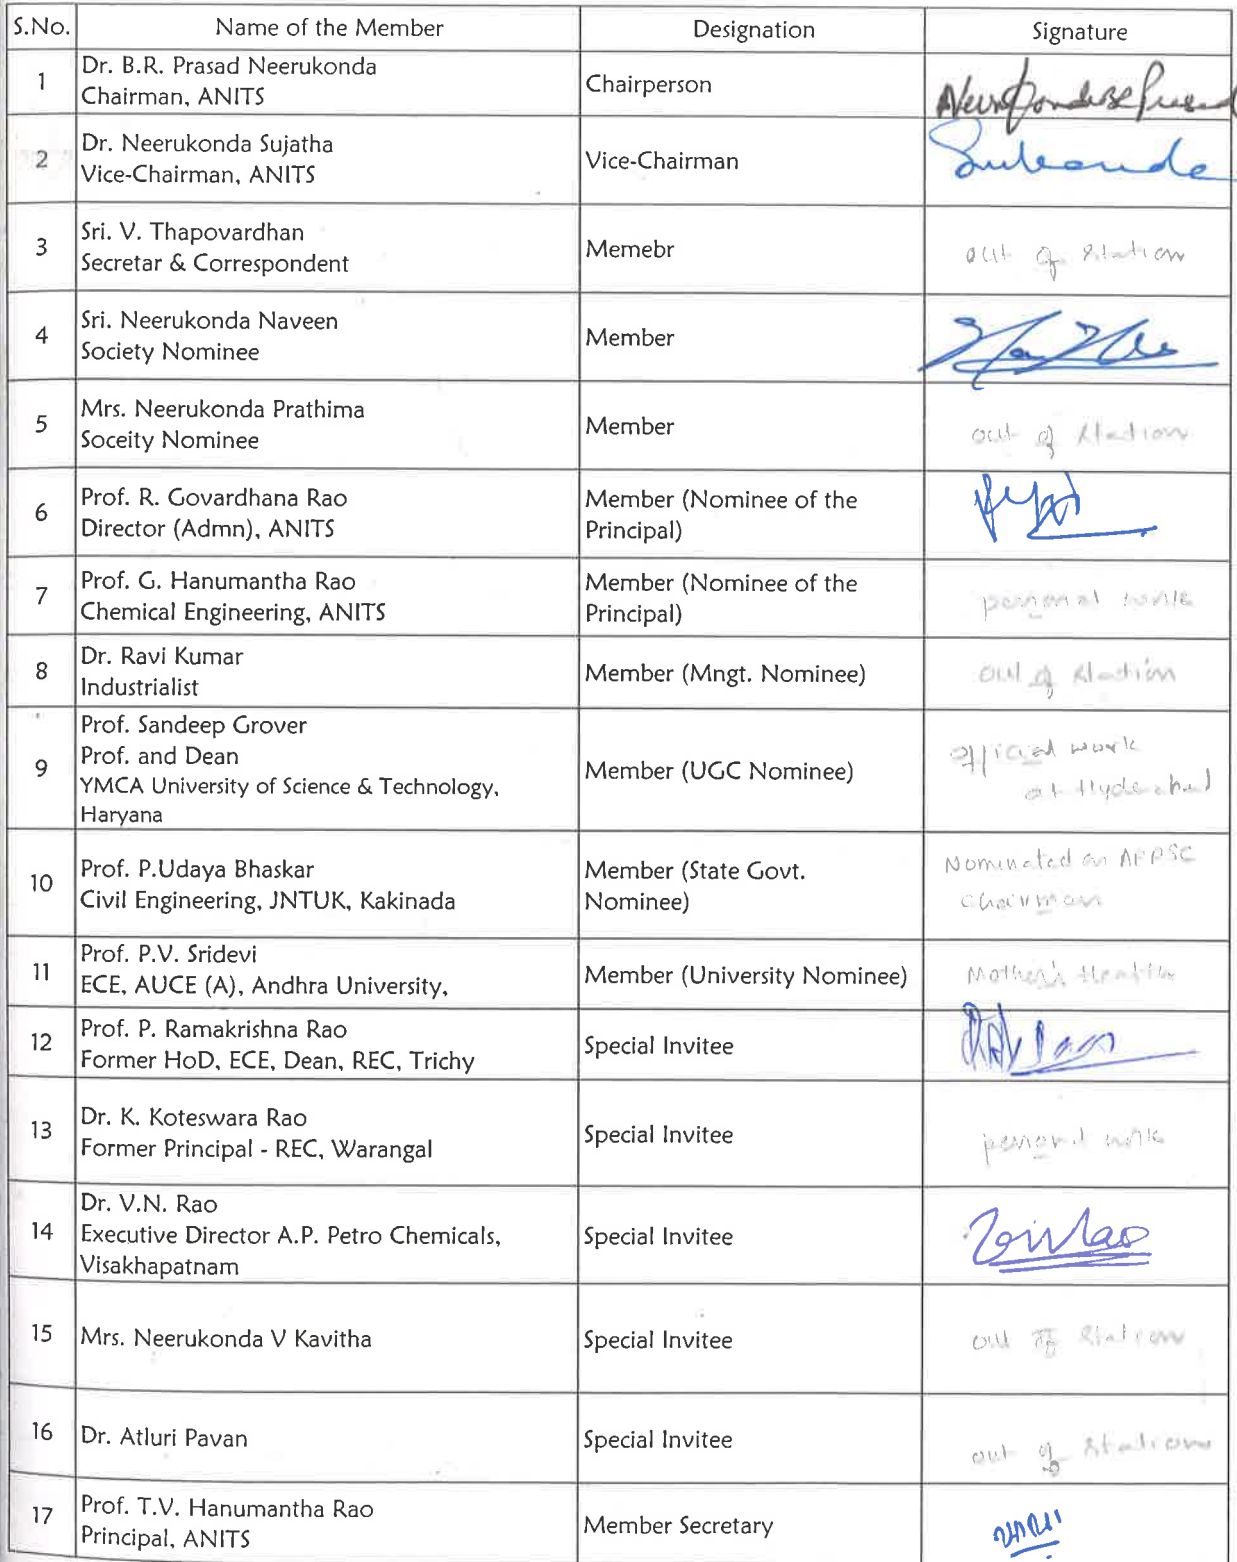 S.No. Name of the Member Designation Signature
1 Dr. B.R. Prasad Neerukonda
Chairman, ANITS
Chairperson
Neerukonda BR Prasad
2 Dr. Neerukonda Sujatha
Vice-Chairman, ANITS
Vice-Chairman
3 Sri. V. Thapovardhan
Secretar & Correspondent
Memebr
out of station
4 Sri. Neerukonda Naveen
Society Nominee
Member
5 Mrs. Neerukonda Prathima
Soceity Nominee
Member
out of station
6 Prof. R. Govardhana Rao
Director (Admn), ANITS
Member (Nominee of the
Principal)
7 Prof. G. Hanumantha Rao
Chemical Engineering, ANITS
Member (Nominee of the
Principal)
personal work
8 Dr. Ravi Kumar
Industrialist
Member (Mngt. Nominee)
out of station
9 Prof. Sandeep Grover
Prof. and Dean
YMCA University of Science & Technology,
Haryana
Member (UGC Nominee)
official work
at Hyderabad
10 Prof. P.Udaya Bhaskar
Civil Engineering, JNTUK, Kakinada
Member (State Govt.
Nominee)
Nominated as APPSC
Chairman
11 Prof. P.V. Sridevi
ECE, AUCE (A), Andhra University,
Member (University Nominee)
Mother's Health
12 Prof. P. Ramakrishna Rao
Former HoD, ECE, Dean, REC, Trichy
Special Invitee
13 Dr. K. Koteswara Rao
Former Principal - REC, Warangal
Special Invitee
personal work
14 Dr. V.N. Rao
Executive Director A.P. Petro Chemicals,
Visakhapatnam
Special Invitee
15 Mrs. Neerukonda V Kavitha
Special Invitee
out of station
16 Dr. Atluri Pavan
Special Invitee
out of station
17 Prof. T.V. Hanumantha Rao
Principal, ANITS
Member Secretary